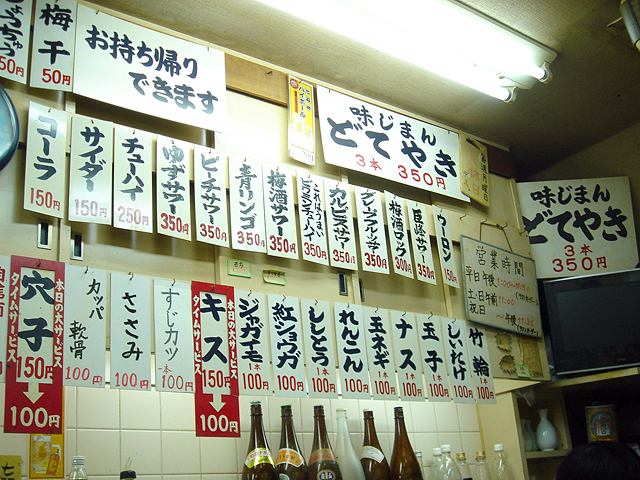 50円
梅干
50円
お持ち帰り
できます
味じまん
どてやき
3本 350円
味じまん
どてやき
3本
350円
コーラ
150円
サイダー
150円
チューハイ
250円
ゆずサワー
350円
ピーチサワー
350円
青リンゴ
350円
梅酒サワー
350円
これはうまい
350円
カルピスサワー
350円
350円
梅酒ロック
300円
巨峰サワー
400円
ウーロン
150円
営業時間
本日の大サービス
タイムサービス
穴子
150円
100円
カッパ
軟骨
100円
ささみ
100円
すじカツ
100円
本日の大サービス
タイムサービス
キス
150円
100円
ジャガイモ
1本 100円
紅ショウガ
100円
ししとう
1本 100円
れんこん
100円
玉ネギ
1本 100円
ナス
100円
玉子
100円
しいたけ
100円
竹輪
1本 100円